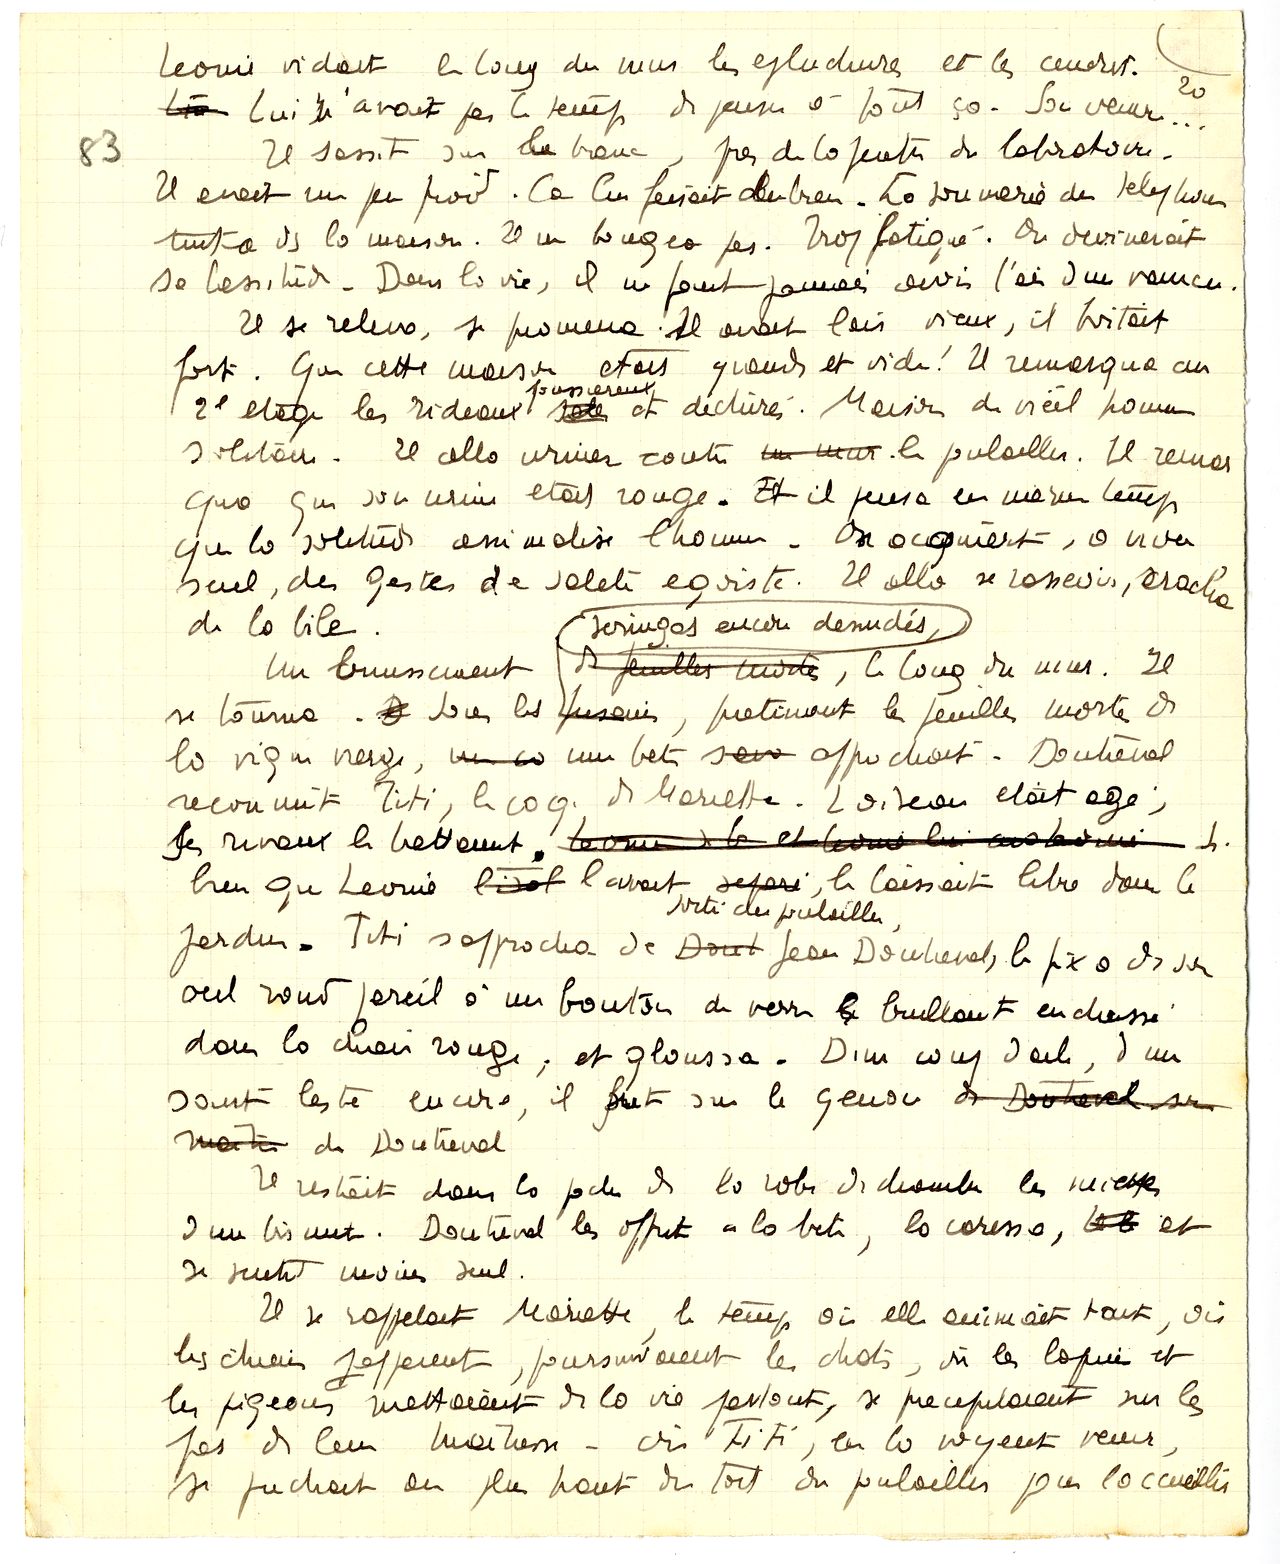 20
Leonie vidait le long du mur les epluchures et les cendres.
Lui n'avait pas le temps de penser à tout ça. Son coeur...
83
Il s'assit sur le banc, pres de la porte du laboratoire.
Il avait un peu froid. Ca lui faisait du bien. La sonnerie du telephone
tinta ds la maison. Il ne bougea pas. Trop fatigué. On devinerait
sa lassitude. Dans la vie, il ne faut jamais avoir l'air d'un vaincu.
Il se releva, se promena. Il avait l'air vieux, il boitait
fort. Que cette maison etait grande et vide! Il remarqua au
poussiereux
2e etage les rideaux sales et déchirés. Maison de vieil homme
solitaire. Il alla uriner contre un mur le poulailler. Il remar
qua que son urine etait rouge. Et il pensa en meme temps
que la solitude animalise l'homme. On acquiert, a vivre
seul, des gestes de saleté egoiste. Il alla se rasseoir, cracha
de la bile.
seringas encore denudés,
Un bruissement de feuilles mortes, le long du mur. Il
se tourna. Sous les fusains, pietinant les feuilles mortes de
la vigne vierge, une bete approchait. Doutreval
reconnut Titi, le coq de Mariette. L'oiseau etait agé,
Ses rivaux le battaient. Si
bien que Leonie l'avait separé, le laissait libre dans le
sorti du poulailler,
jardin. Titi s'approcha de Dout Jean Doutreval, le fixa de son
oeil rond pareil à un bouton de verre brillant enchassé
dans la chair rouge, et gloussa. D'un coup d'aile, d'un
saut leste encore, il fut sur le genou de Doutreval son
maitre de Doutreval
Il restait dans la poche de la robe de chambre les miettes
d'un biscuit. Doutreval les offrit a la bete, la caressa, et
se sentit moins seul.
Il se rappelait Mariette, le temps où elle animait tout, où
les chiens jappaient, poursuivaient les chats, où les lapins et
les pigeons mettaient de la vie partout, se precipitaient sur les
pas de leur maitresse - où Titi, en la voyant venir,
se juchait au plus haut du toit du poulailler pour l'accueillir